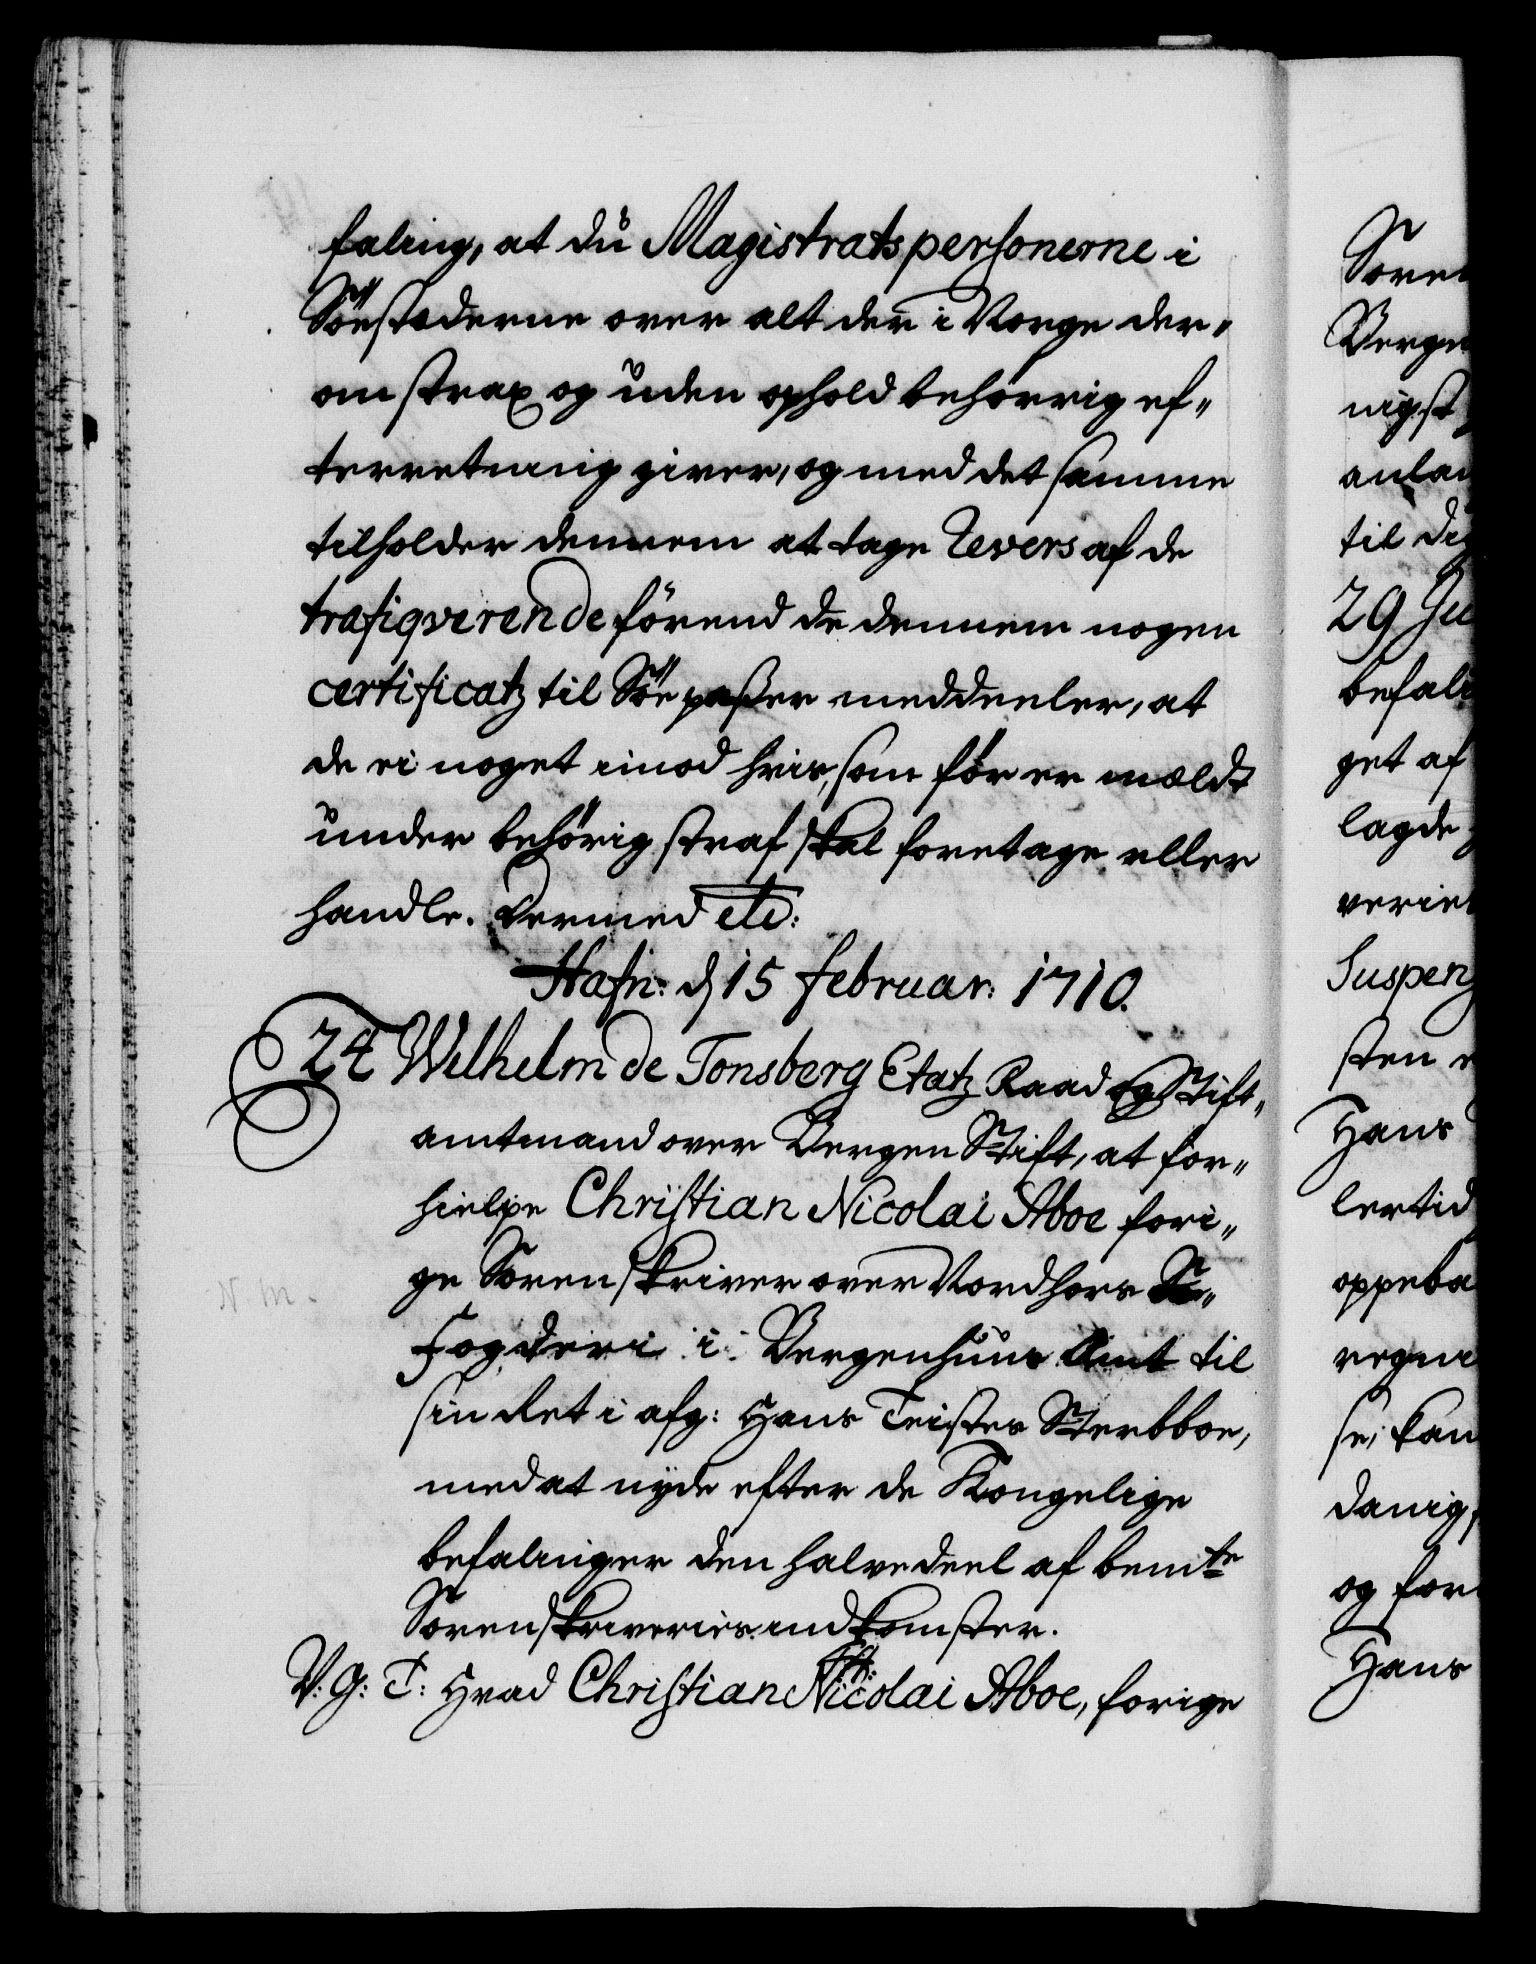 faling, at du Magistratspersonerne i
Söestæderne over alt der i Norge der„
om strax og uden ophold behörrig ef„
terretning giver, og med det samme
tilholder dennem at tage Revers af de
trafiqverende förend de dennem nogen
certificatz til Söe passer meddeeler, at
de ei noget imod hvis, som för er meldt
under behörig straf skal foretage eller
handle. Dermed etc:
Hafn: d 15 Februar: 1710.
24 Wilhelm de Tonsberg Etatz Raad og Stift„
amtmand over Bergen Stift, at for„
hielpe Christian Nicolai Aboe fori„
ge Sorenskriver over Nordhors
N. m.
Fogderi i Bergenhuus Amt til
sin Ret i afg: Hans Teistes Sterbboe,
med at nyde efter de Kongelige
befalinger den halvedeel af bemte
Sorenskriveries indkomster.
V: G: T: Hvad Christian Nicolai Aboe, forige
Soren
Bergen
nigst
anlan
til di
29 Ju
befal
get af
lagde
veriet
Suspen
sten
Hans
lertid
oppeba
regne
se, kan
danig
og for
Hans